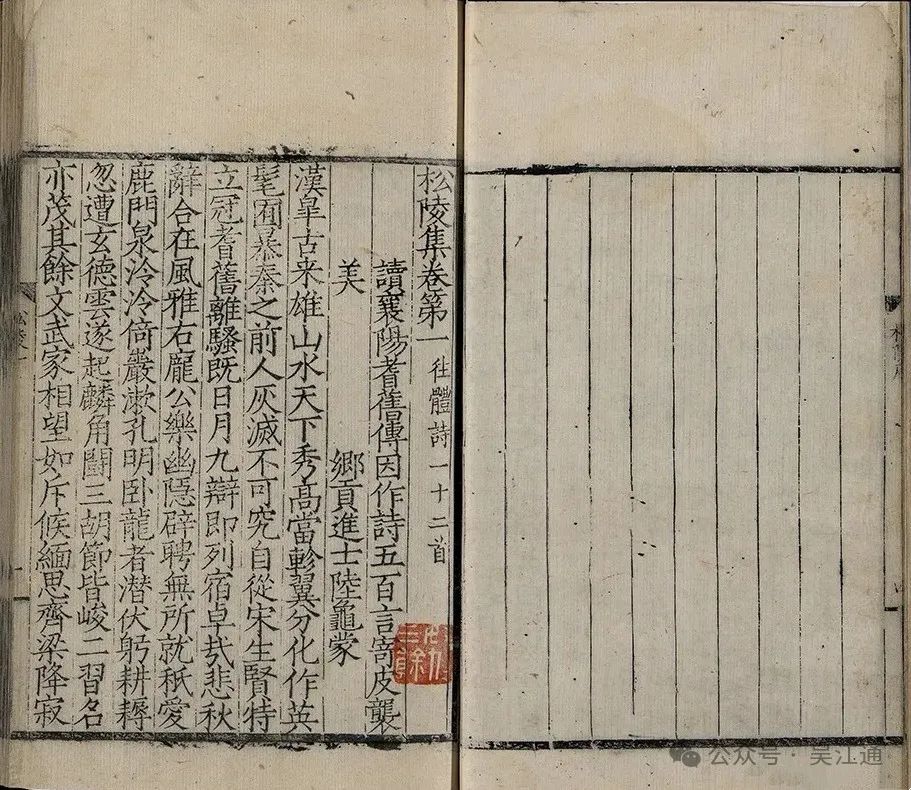 松陵集卷第一 往體詩一十二首
讀襄陽耆舊傳因作詩五百言寄皮襲
美
鄉貢進士陸龜蒙
漢皐古来雄山水天下秀高當軫翼分化作英
髦囿暴秦之前人灰滅不可究自從宋生賢特
立冠耆舊離騷旣日月九辯即列宿卓㢤悲秋
辭合在風雅右龐公樂幽隱辟聘無所就秖愛
鹿門泉泠泠倚巖漱孔明卧龍者潜伏躬耕耨
忽遭玄德雲遂起麟角鬪三胡節皆峻二習名
亦茂其餘文武家相望如斥候緬思齊梁降寂
公众号 · 吴江通